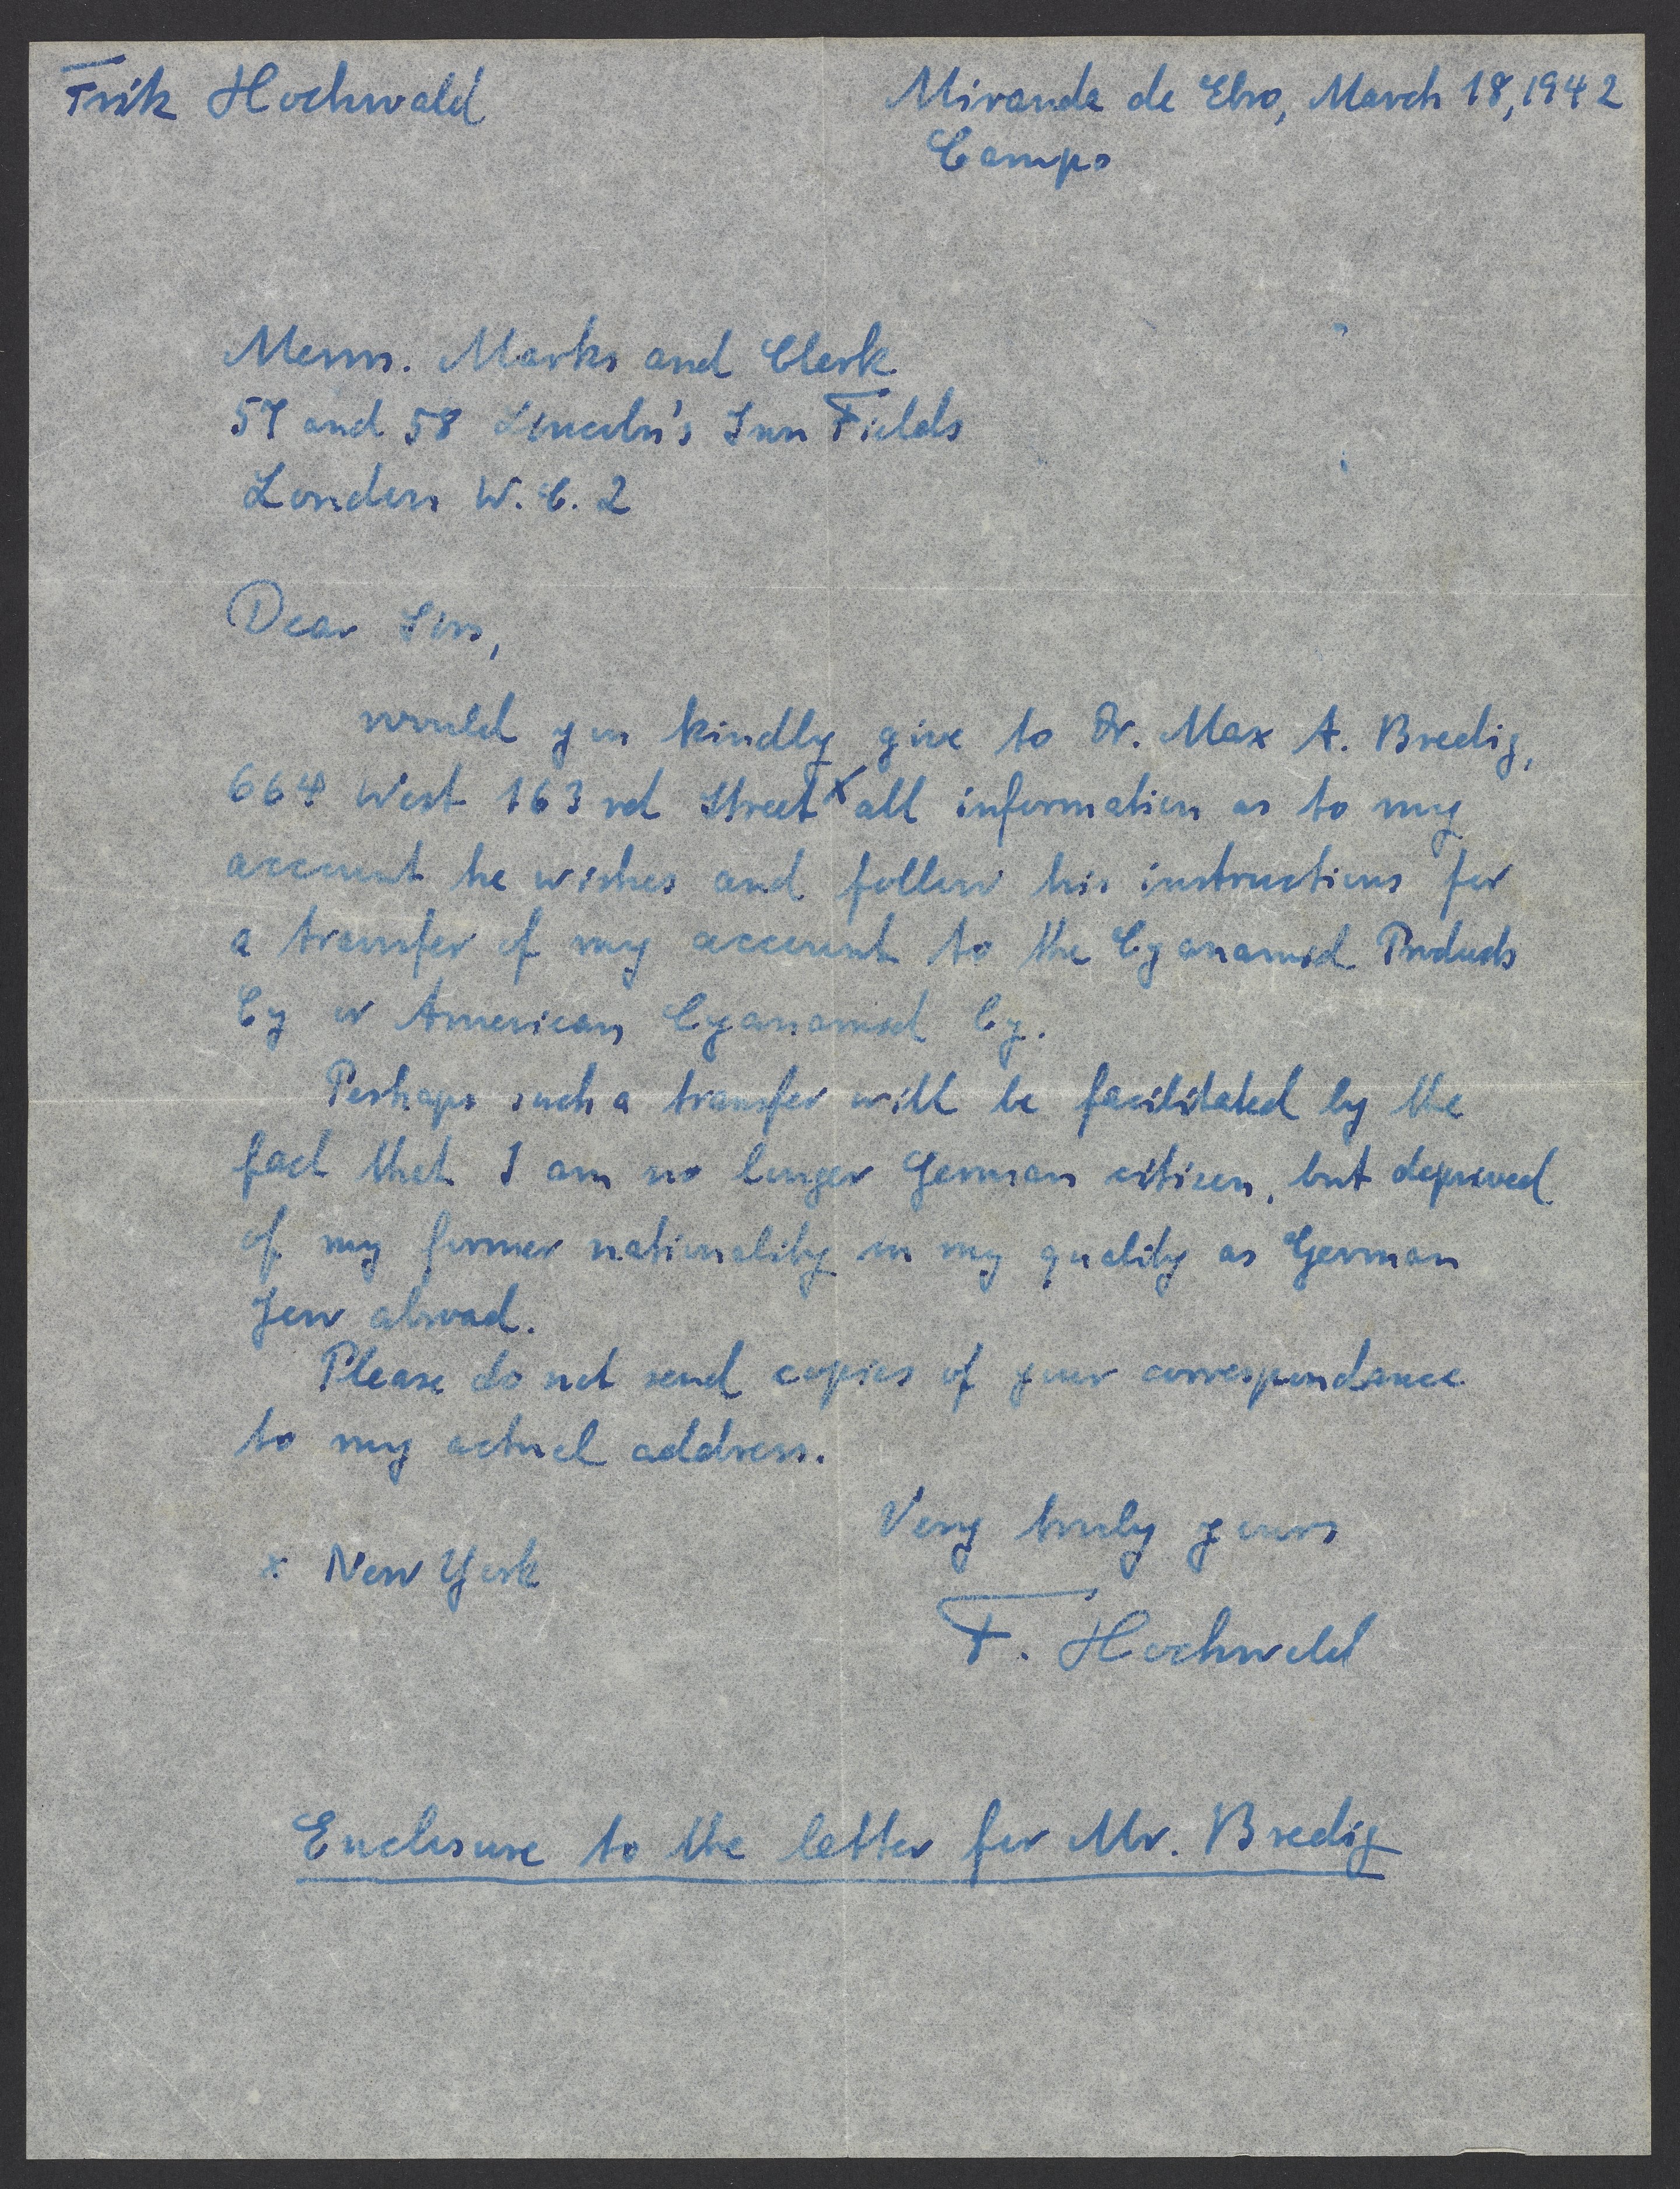 Fritz Hochwald
Miranda de Ebro, March 18, 1942
Campo
Messrs. Marks and Clerk
57 and 58 Lincoln's Inn Fields
London W.C. 2
Dear Sirs,
would you kindly give to Dr. Max A. Bredig,
664 West 163rd Street x all information as to my
account he wishes and follow his instructions for
a transfer of my account to the Cyanamid Products
Cy or American Cyanamid Cy.
Perhaps such a transfer will be facilitated by the
fact that I am no longer German citizen, but deprived
of my former nationality in my quality as German
Jew abroad.
Please do not send copies of your correspondance
to my actual address.
Very truly yours
x New York
F. Hochwald
Enclosure to the letter for Mr. Bredig